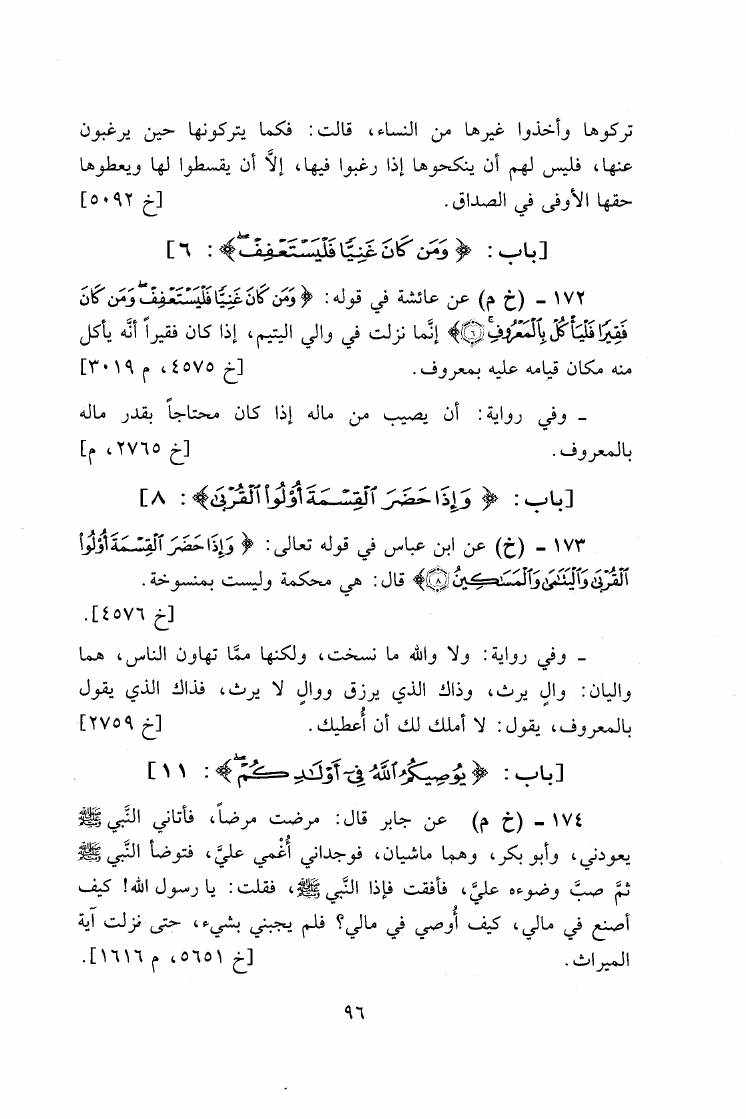 تركوها وأخذوا غيرها من النساء، قالت: فكما يتركونها حين يرغبون
عنها، فليس لهم أن ينكحوها إذا رغبوا فيها، إلَّا أن يقسطوا لها ويعطوها
حقها الأوفى في الصداق. [خ ٥٠٩٢]
[باب: ﴿وَمَن كَانَ غَنِيًّا فَلْيَسْتَعْفِفْ ۖ﴾: ٦]
١٧٢ ـ (خ م) عن عائشة في قوله: ﴿وَمَن كَانَ غَنِيًّا فَلْيَسْتَعْفِفْ ۖ وَمَن كَانَ
فَقِيرًا فَلْيَأْكُلْ بِالْمَعْرُوفِ ۚ ٦﴾ إنَّما نزلت في والي اليتيم، إذا كان فقيراً أنَّه يأكل
منه مكان قيامه عليه بمعروف. [خ ٤٥٧٥، م ٣٠١٩]
ـ وفي رواية: أن يصيب من ماله إذا كان محتاجاً بقدر ماله
بالمعروف. [خ ٢٧٦٥، م]
[باب: ﴿وَإِذَا حَضَرَ الْقِسْمَةَ أُوْلُوا الْقُرْبَىٰ﴾: ٨]
١٧٣ ـ (خ) عن ابن عباس في قوله تعالى: ﴿وَإِذَا حَضَرَ الْقِسْمَةَ أُوْلُوا
الْقُرْبَىٰ وَالْيَتَامَىٰ وَالْمَسَاكِينُ ٨﴾ قال: هي محكمة وليست بمنسوخة.
[خ ٤٥٧٦].
ـ وفي رواية: ولا والله ما نسخت، ولكنها ممَّا تهاون الناس، هما
واليان: والٍ يرث، وذاك الذي يرزق ووالٍ لا يرث، فذاك الذي يقول
بالمعروف، يقول: لا أملك لك أن أُعطيك. [خ ٢٧٥٩]
[باب: ﴿يُوصِيكُمُ اللَّهُ فِي أَوْلَادِكُمْ ۖ﴾: ١١]
١٧٤ ـ (خ م) عن جابر قال: مرضت مرضاً، فأتاني النَّبي ﷺ
يعودني، وأبو بكر، وهما ماشيان، فوجداني أُغْمي عليَّ، فتوضأ النَّبي ﷺ
ثمَّ صبَّ وضوءه عليَّ، فأفقت فإذا النَّبي ﷺ، فقلت: يا رسول الله! كيف
أصنع في مالي، كيف أُوصي في مالي؟ فلم يجبني بشيء، حتى نزلت آية
الميراث. [خ ٥٦٥١، م ١٦١٦].
٩٦